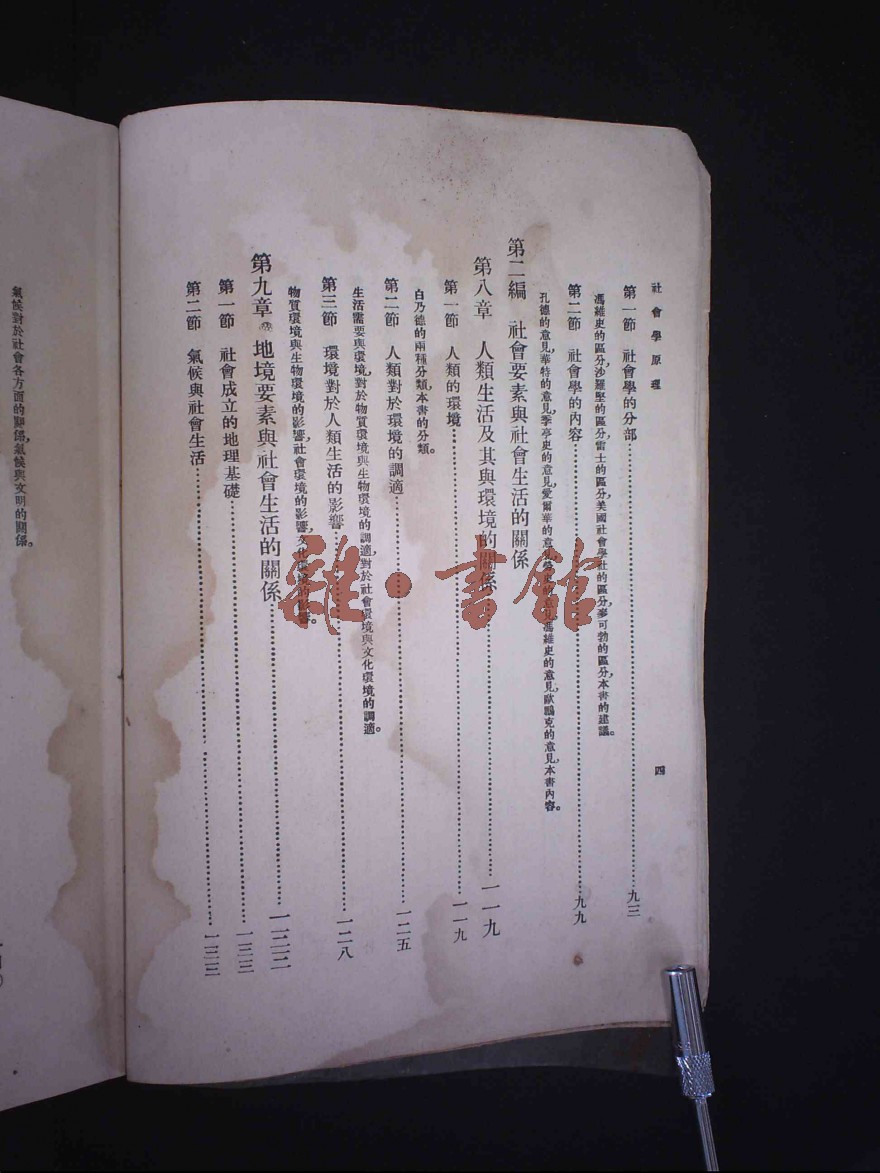 社會學原理
四
第一節 社會學的分部……九三
馮維史的區分,沙羅堅的區分,雷士的區分,美國社會學社的區分,麥可勃的區分,本書的建議。
第二節 社會學的內容……九九
孔德的意見,華特的意見,季亭史的意見,愛爾華的意見,史的意見,馮維史的意見,歐鵬克的意見,本書內容。
第二編 社會要素與社會生活的關係
第八章 人類生活及其與環境的關係……一一九
第一節 人類的環境……一一九
白乃德的兩種分類,本書的分類。
第二節 人類對於環境的調適……一二五
生活需要與環境,對於物質環境與生物環境的調適,對於社會環境與文化環境的調適。
第三節 環境對於人類生活的影響……一二八
物質環境與生物環境的影響,社會環境的影響,文化環境的影響。
第九章 地境要素與社會生活的關係……一三三
第一節 社會成立的地理基礎……一三三
第二節 氣候與社會生活……一三三
氣候對於社會各方面的關係,氣候與文明的關係。
雜·書館